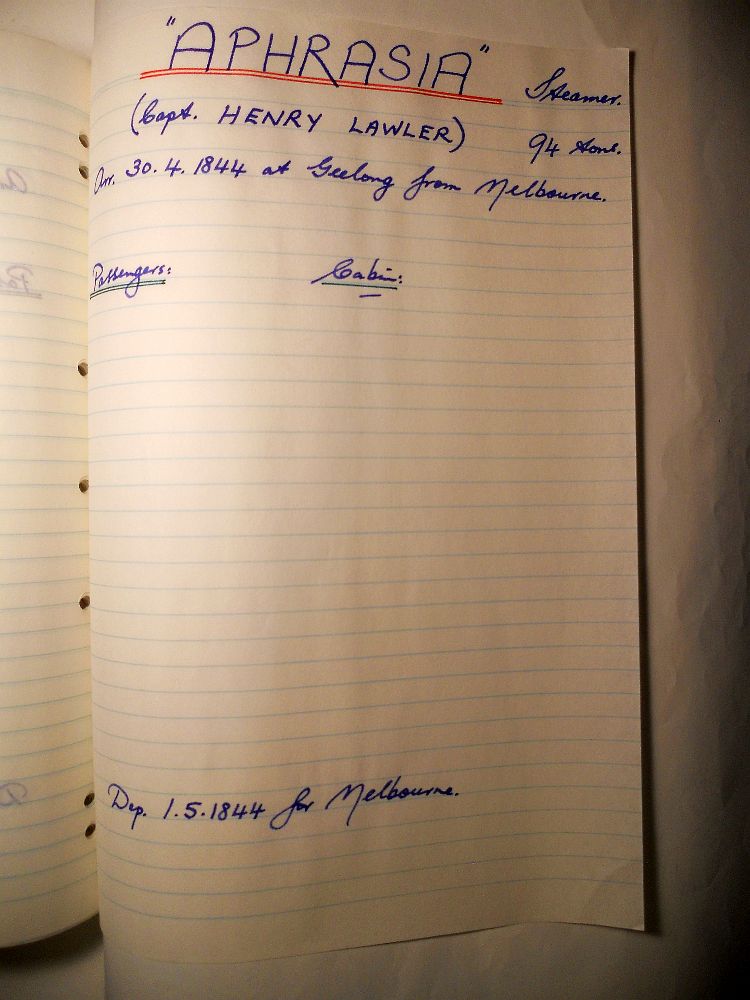 "APHRASIA" Steamer.
(Capt. HENRY LAWLER) 94 tons.
Arr. 30.4.1844 at Geelong from Melbourne.
Passengers: Cabin:
Dep. 1.5.1844 for Melbourne.